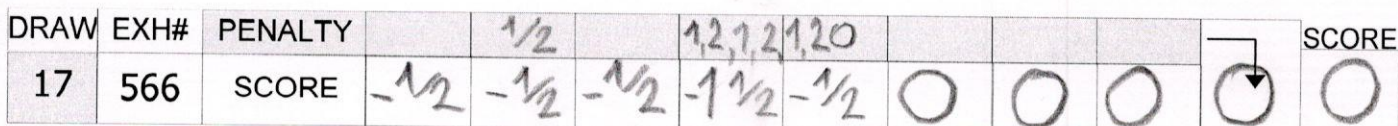 DRAW EXH# PENALTY 1/2 1,2,1,2 1,20 SCORE
17 566 SCORE -1/2 -1/2 -1/2 -1 1/2 -1/2 0 0 0 0 0